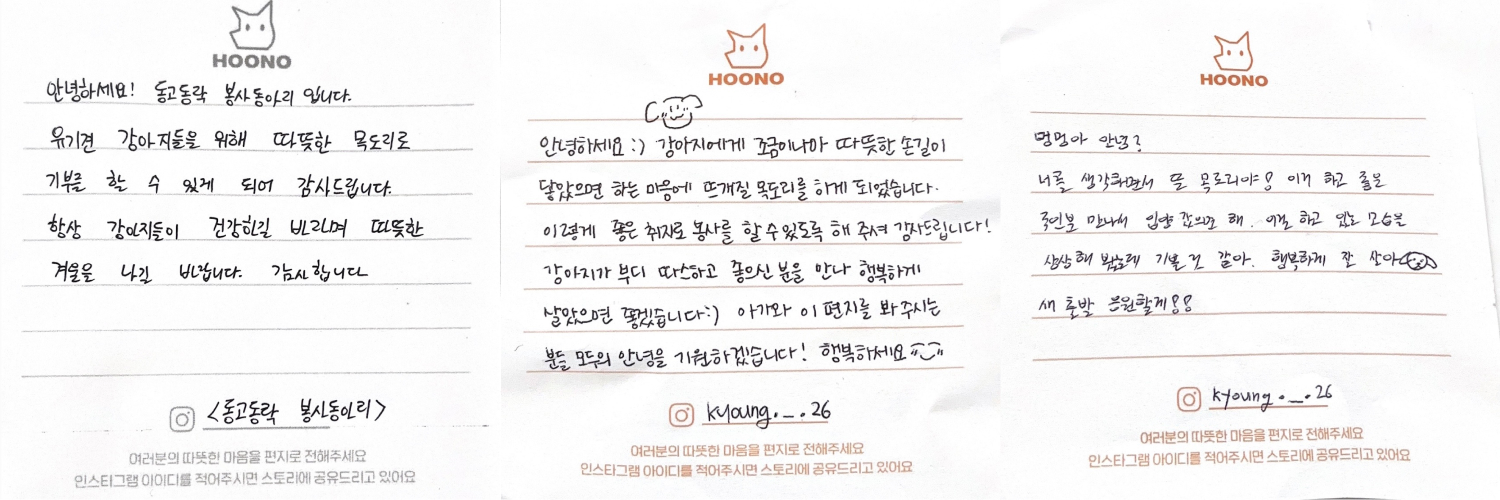 HOONO
안녕하세요! 동고동락 봉사동아리 입니다.
유기견 강아지들을 위해 따뜻한 목도리로
기부를 할 수 있게 되어 감사드립니다.
항상 강아지들이 건강하길 바라며 따뜻한
겨울을 나길 바랍니다. 감사합니다
<동고동락 봉사동아리>
여러분의 따뜻한 마음을 편지로 전해주세요
인스타그램 아이디를 적어주시면 스토리에 공유드리고 있어요
HOONO
안녕하세요 :) 강아지에게 조금이나마 따뜻한 손길이
닿았으면 하는 마음에 뜨개질 목도리를 하게 되었습니다.
이렇게 좋은 취지로 봉사를 할 수 있도록 해 주셔 감사드립니다!
강아지가 부디 따스하고 좋으신 분을 만나 행복하게
살았으면 좋겠습니다:) 아가와 이 편지를 봐 주시는
분들 모두의 안녕을 기원하겠습니다! 행복하세요
kyoung._.26
여러분의 따뜻한 마음을 편지로 전해주세요
인스타그램 아이디를 적어주시면 스토리에 공유드리고 있어요
HOONO
멍멍아 안녕?
너를 생각하면서 뜬 목도리야! 이거 하고 좋은
주인분 만나서 입양 갔으면 해. 이걸 하고 있는 모습을
상상해 봤는데 기쁠 것 같아. 행복하게 잘 살아
새 출발 응원할게!!
kyoung._.26
여러분의 따뜻한 마음을 편지로 전해주세요
인스타그램 아이디를 적어주시면 스토리에 공유드리고 있어요